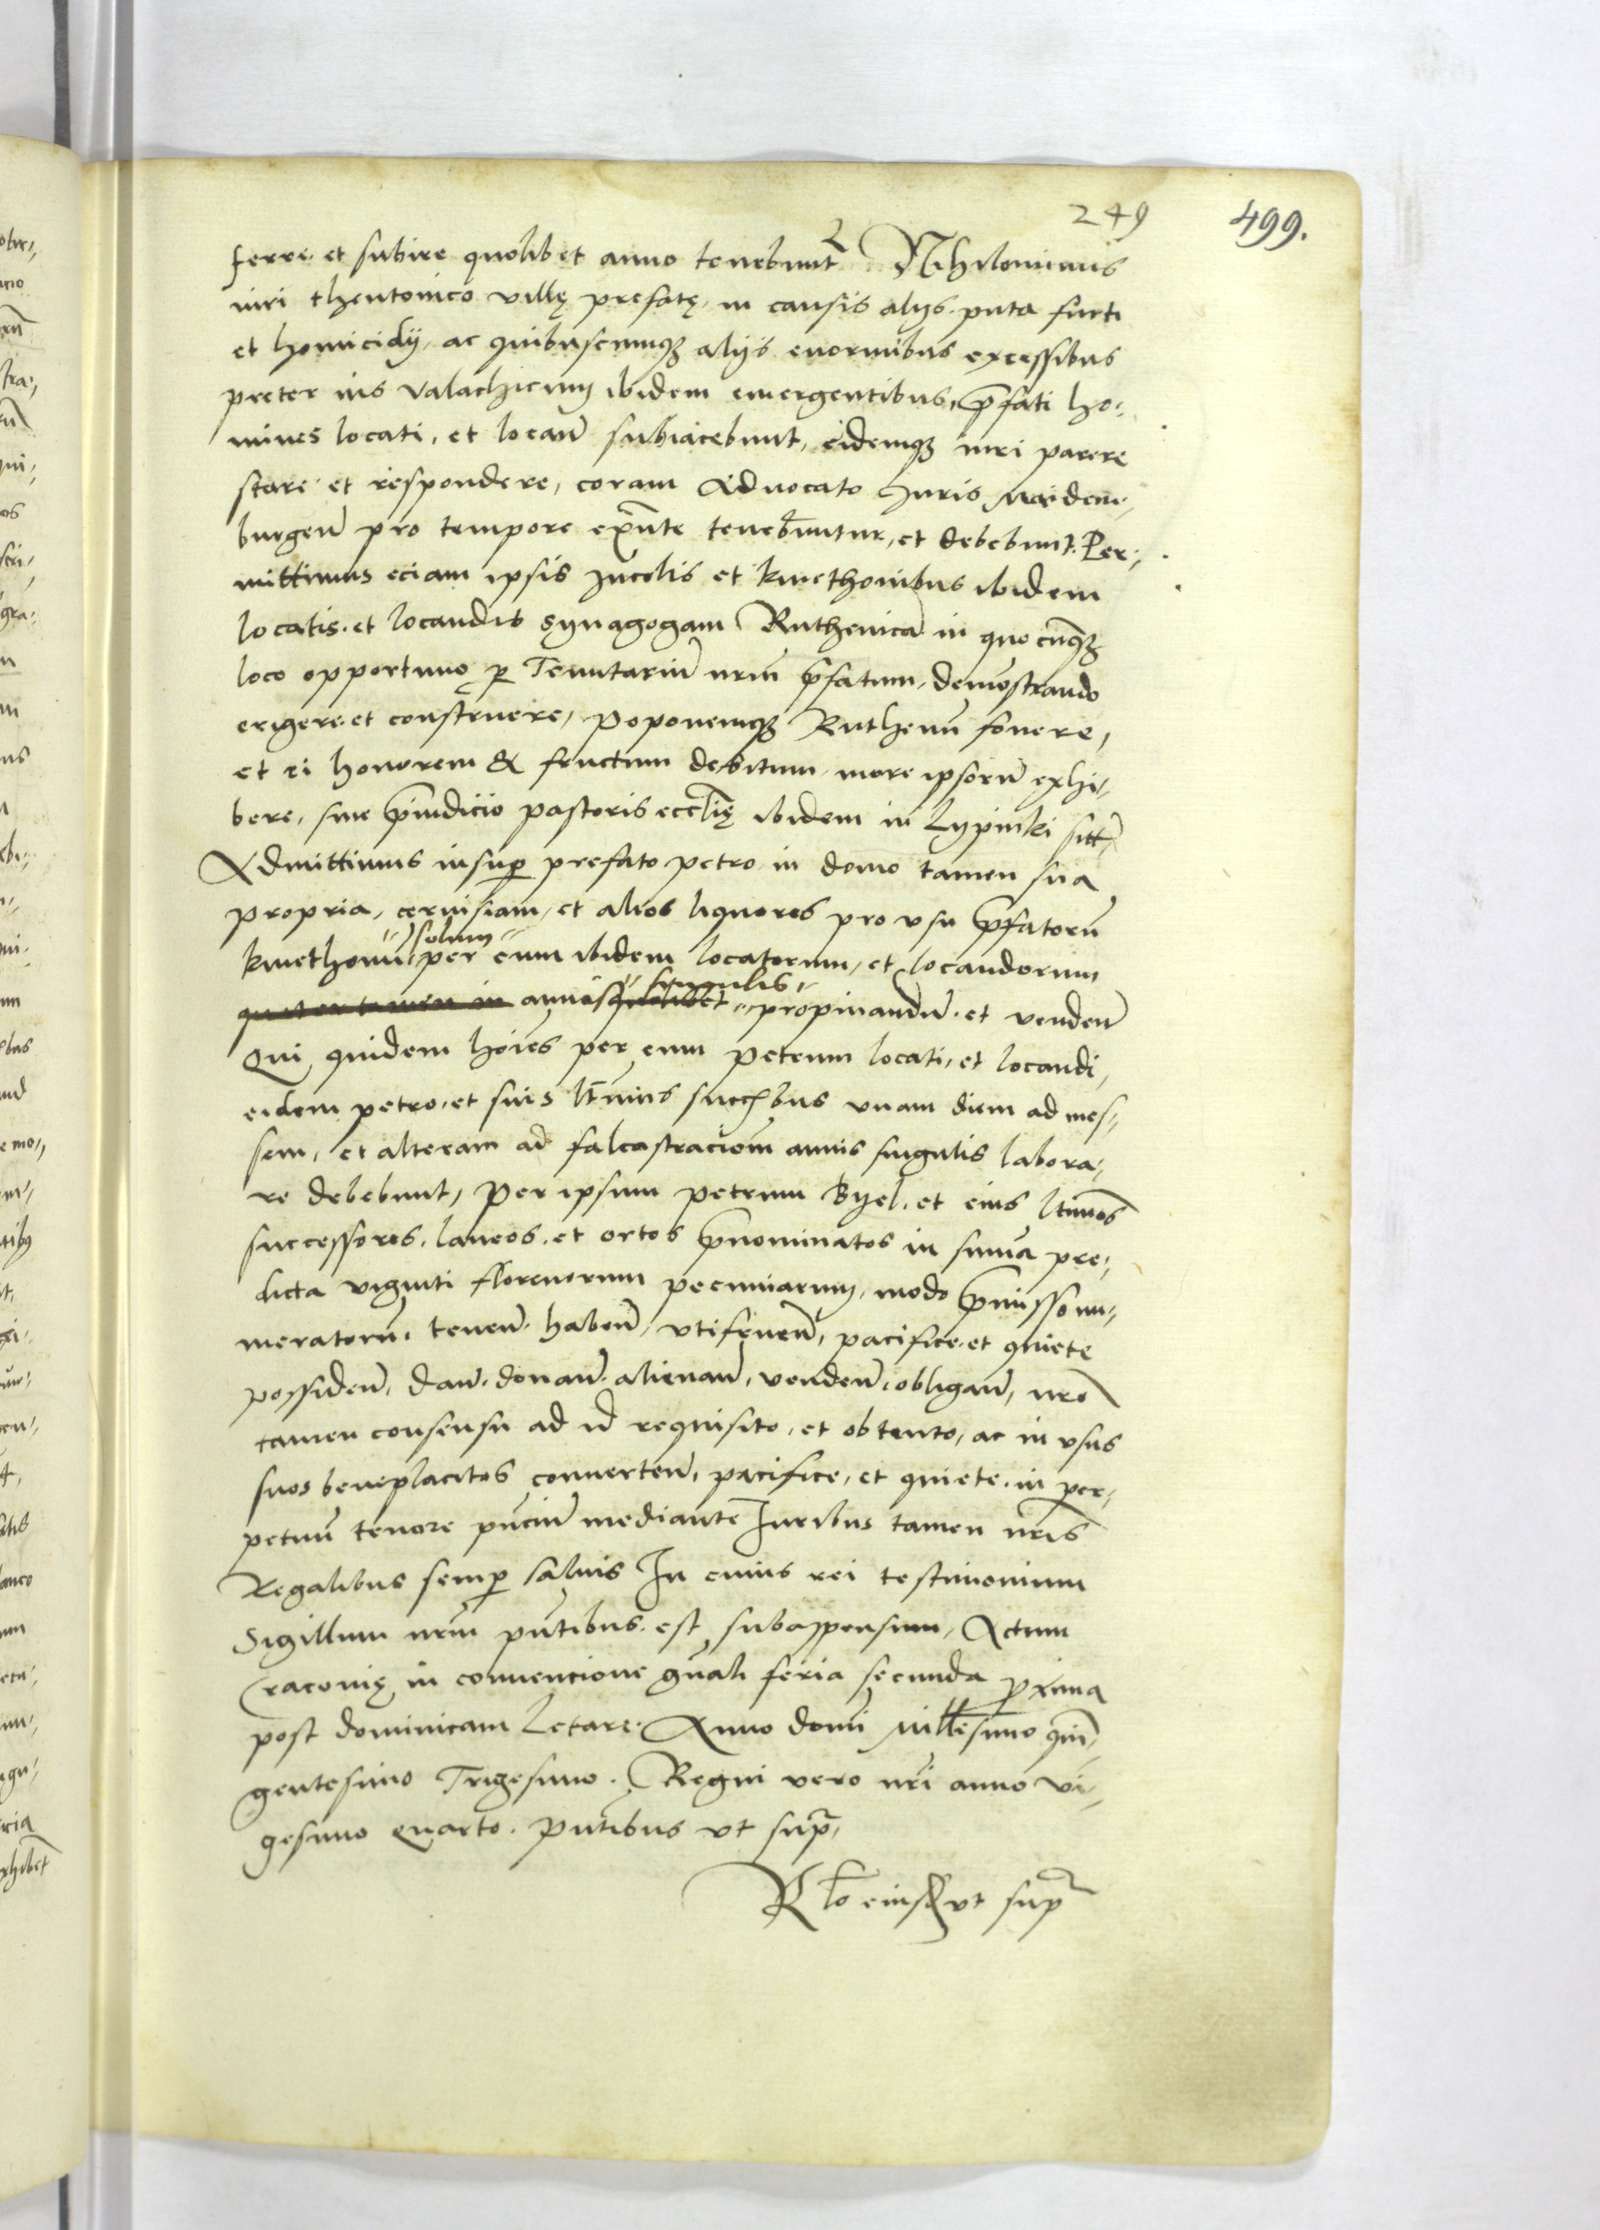 249 499.
ferre et subire quolibet anno tenebunt2 Nihilominus
iuri theutonico villę prefatę in causis alijs puta furti
et homicidij, ac quibuscumqꝫ alijs enormibus excessibus
preter ius valachicum ibidem emergentibus, p̄fati ho-
mines locati, et locan̄ subiacebunt, eidemqꝫ iuri parere
stare et respondere, coram Aduocato Juris Maidem-
burgen̄ pro tempore exn̄te teneb̄untur, et debebunt. Per-
mittimus eciam ipsis Incolis et kmethonibus ibidem
locatis et locandis synagogam Ruthenicā in quocūqꝫ
loco opportuno ꝑ Tenutariū nrm̄ p̄fatum, demōstrando
erigere et construere, Poponemqꝫ Ruthenū fouere,
et ei honorem & fructum debitum more ipsorū exhi-
bere, sine p̄iudicio pastoris ecclīę ibidem in Lypinki sitt̄
Admittimus insuꝑ prefato petro in domo tamen sua
propria, ceruisiam, et alios liquores pro vsu p̄fatorū
kmethonū solum per eum ibidem locatorum, et locandorum
quater tamen in annis quolibet singulis propinandū et venden̄
Qui quidem hoīes per eum Petrum locati, et locandi,
eidem petro, et suis ltīmis succ̄bus vnam diem ad mes-
sem, et alteram ad falcastracionem̄ annis singulis labora-
re debebunt, Per ipsum petrum Byel, et eius ltīmos
successores, laneos et ortos p̄nominatos in sum̄a pre-
dicta viginti florenorum pecuniarum, modo p̄misso nu-
meratorū, tenen̄ haben̄, vtifruen̄, pacifice et quiete
possiden̄, dan̄ donan̄ alienan̄, venden̄, obligan̄, nr̄o
tamen consensu ad id requisito, et obtento, ac in vsus
suos beneplacitos conuerten̄, pacifice, et quiete in per-
petuū tenore pn̄ciū mediante Juribus tamen nr̄is
Regalibus semꝑ saluis In cuius rei testimonium
Sigillum nrm̄ pn̄tibus est subappensum, Actum
Cracouię in conuencione gn̄ali feria secunda ꝓxima
post dominicam Letare. Anno domī Millesimo quī-
gentesimo Trigesimo. Regni vero nr̄i anno vi-
gesimo Quarto. Pn̄tibus vt supra,
Rl̄o eiusd̄ vt supra